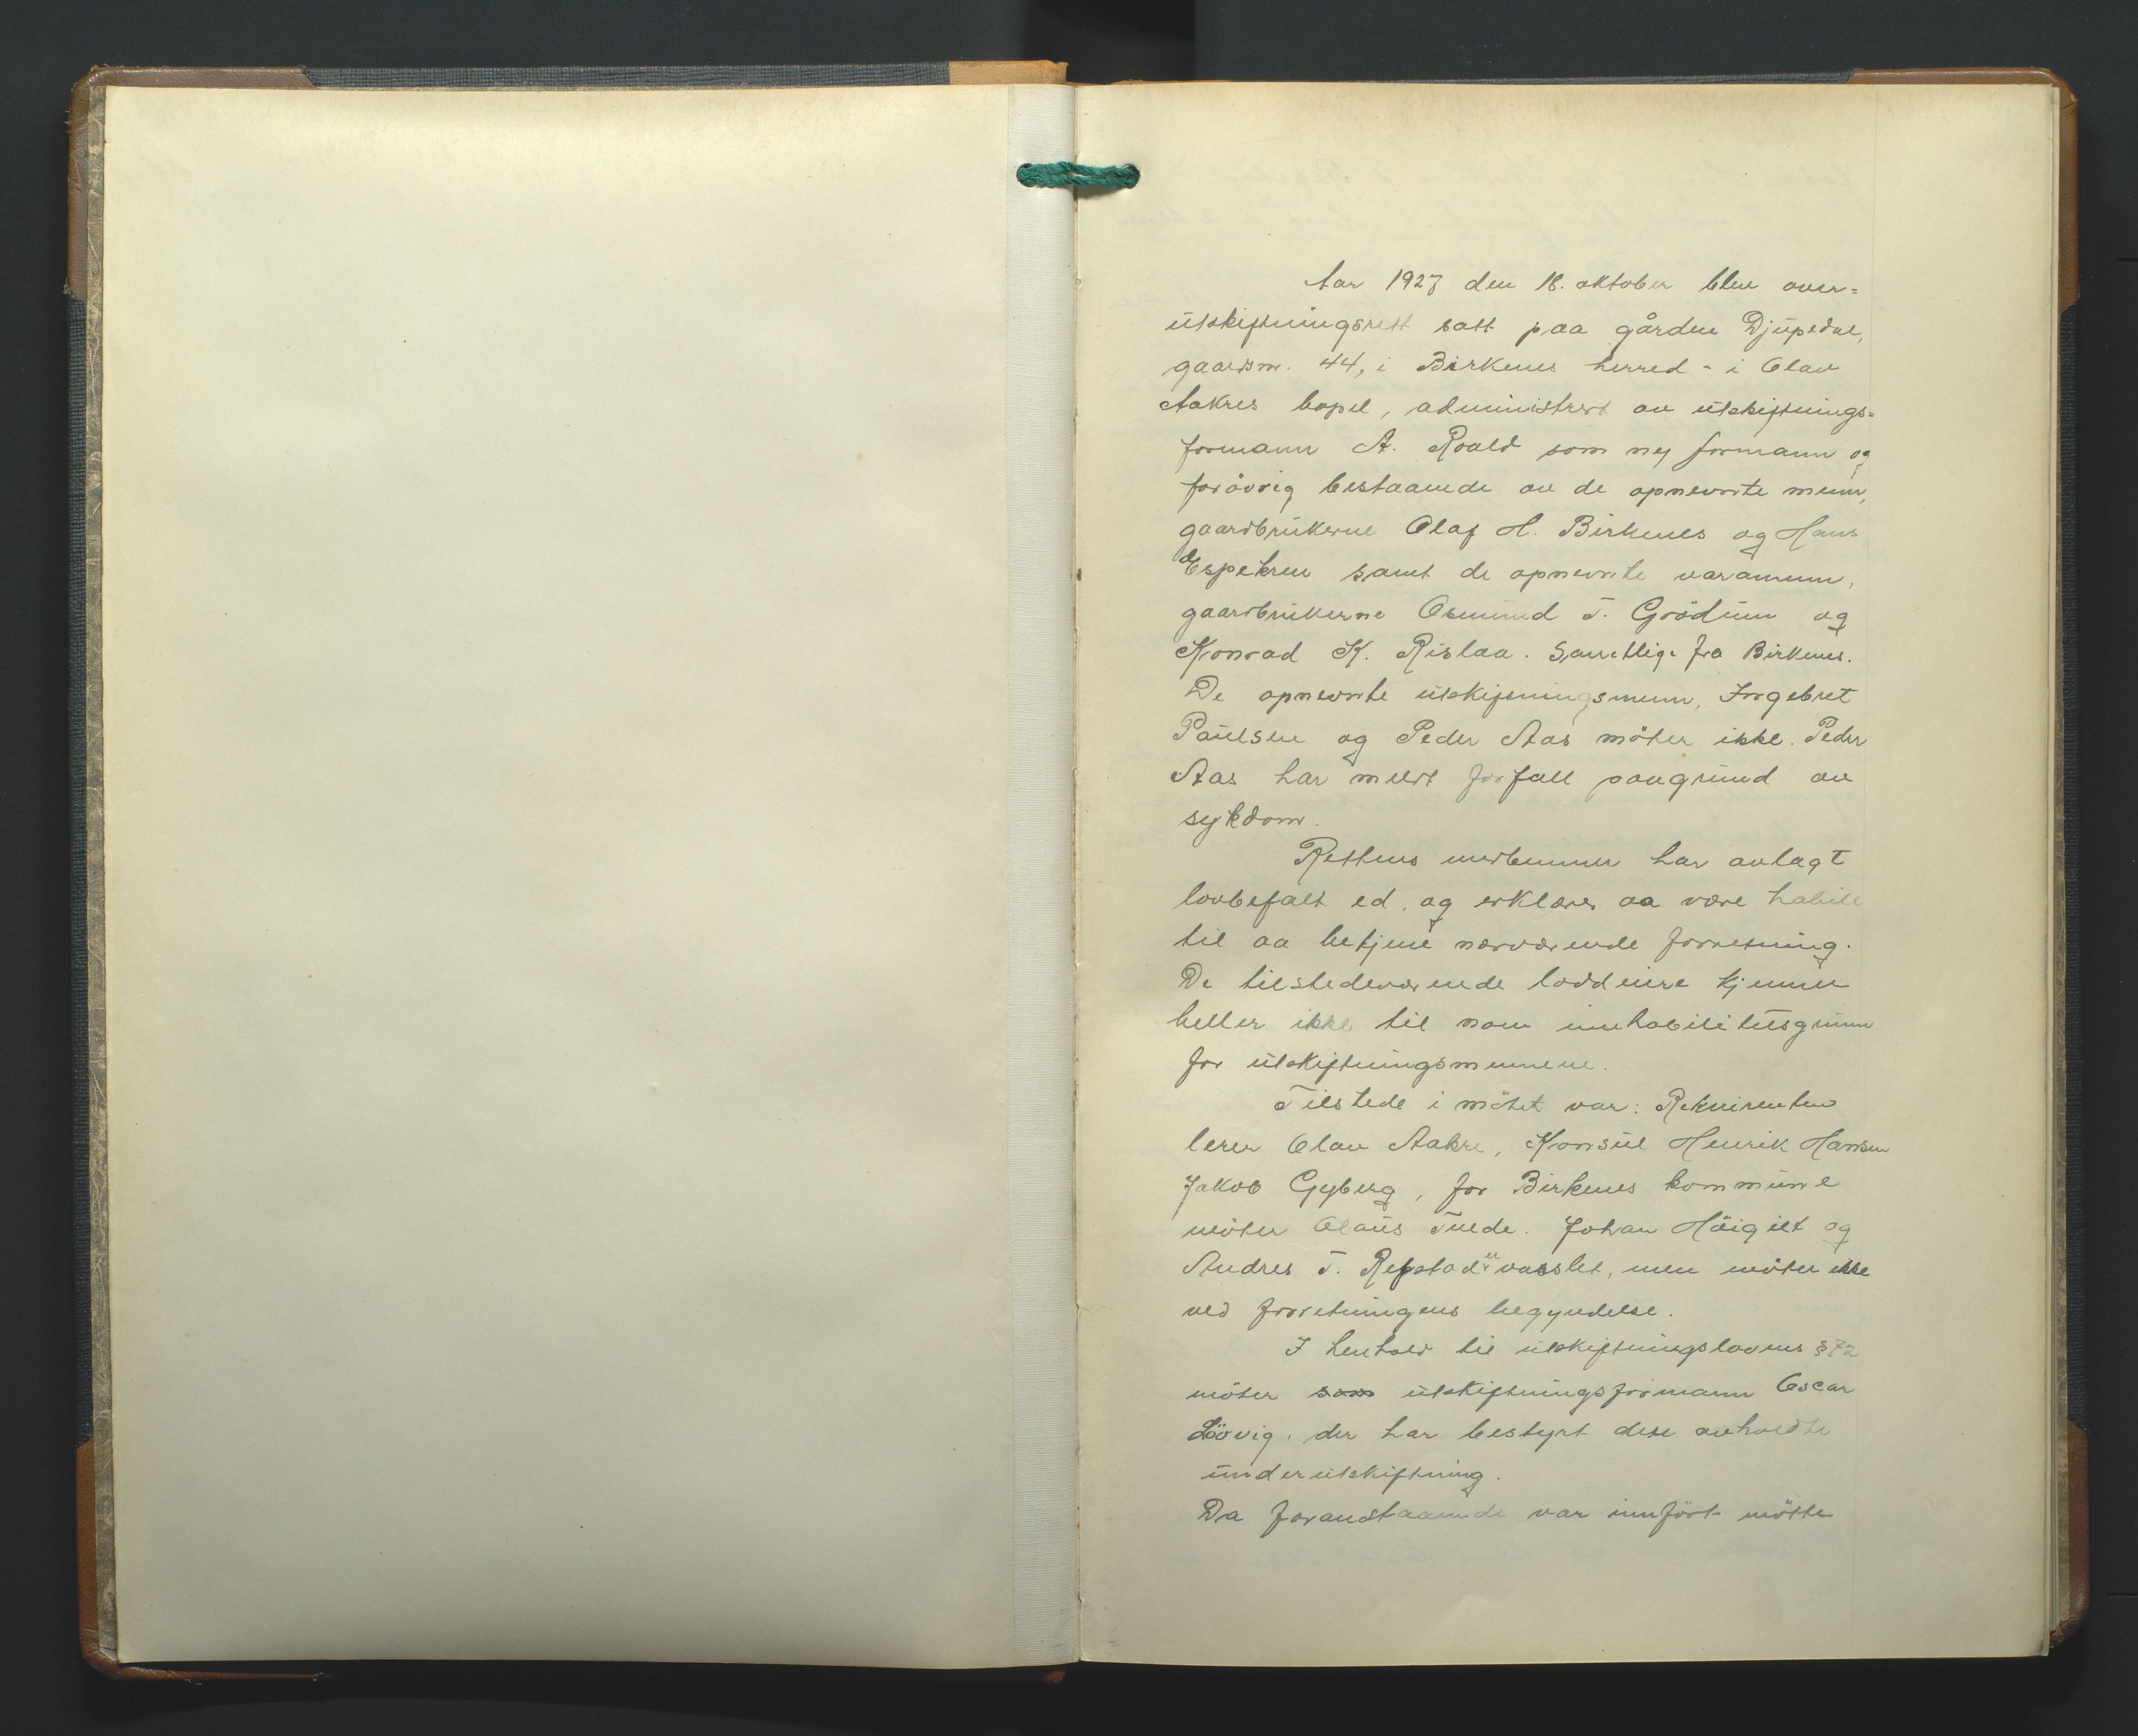 Aar 1927 den 18. oktober blev over=
utskiftningsrett satt paa gården Djupedal,
gaardsnr. 44, i Birkenes herred - i Olav
Aakres bopel, administrert av utskiftnings=
formann A. Roald som ny formann og
forövrig bestaaende av de opnevnte menn,
gaardbrukerne Olaf H. Birkenes og Hans
Espekren samt de opnevnte varamenn,
gaardbrukerne Osmund T. Grödum og
Konrad K. Rislaa. Samtlige fra Birkenes.
De opnevnte utskiftningsmenn, Ingebret
Paulsen og Peder Aas möter ikke. Peder
Aas har meldt forfall paagrund av
sykdom.
Rettens medlemmer har avlagt
lovbefalt ed, og erklærer aa være habile
til aa betjene nærværende forretning.
De tilstedeværende loddeiere kjenner
heller ikke til noen innhabilitetsgrunn
for utskiftningsmennene.
Tilstede i mötet var: Rekvirenten
lerer Olav Aakre, Konsul Henrik Hansen
Jakob Gyberg, for Birkenes kommune
möter Olaus Tuede. Johan Höigilt og
Andres T. Repstad er varslet, men möter ikke
ved forretningens begyndelse.
I henhold til utskiftningslovens § 72
möter som utskiftningsformann Oscar
Löövig, der har bestyrt dese avholdte
underutskiftning.
Da foranstaaende var innfört mötte